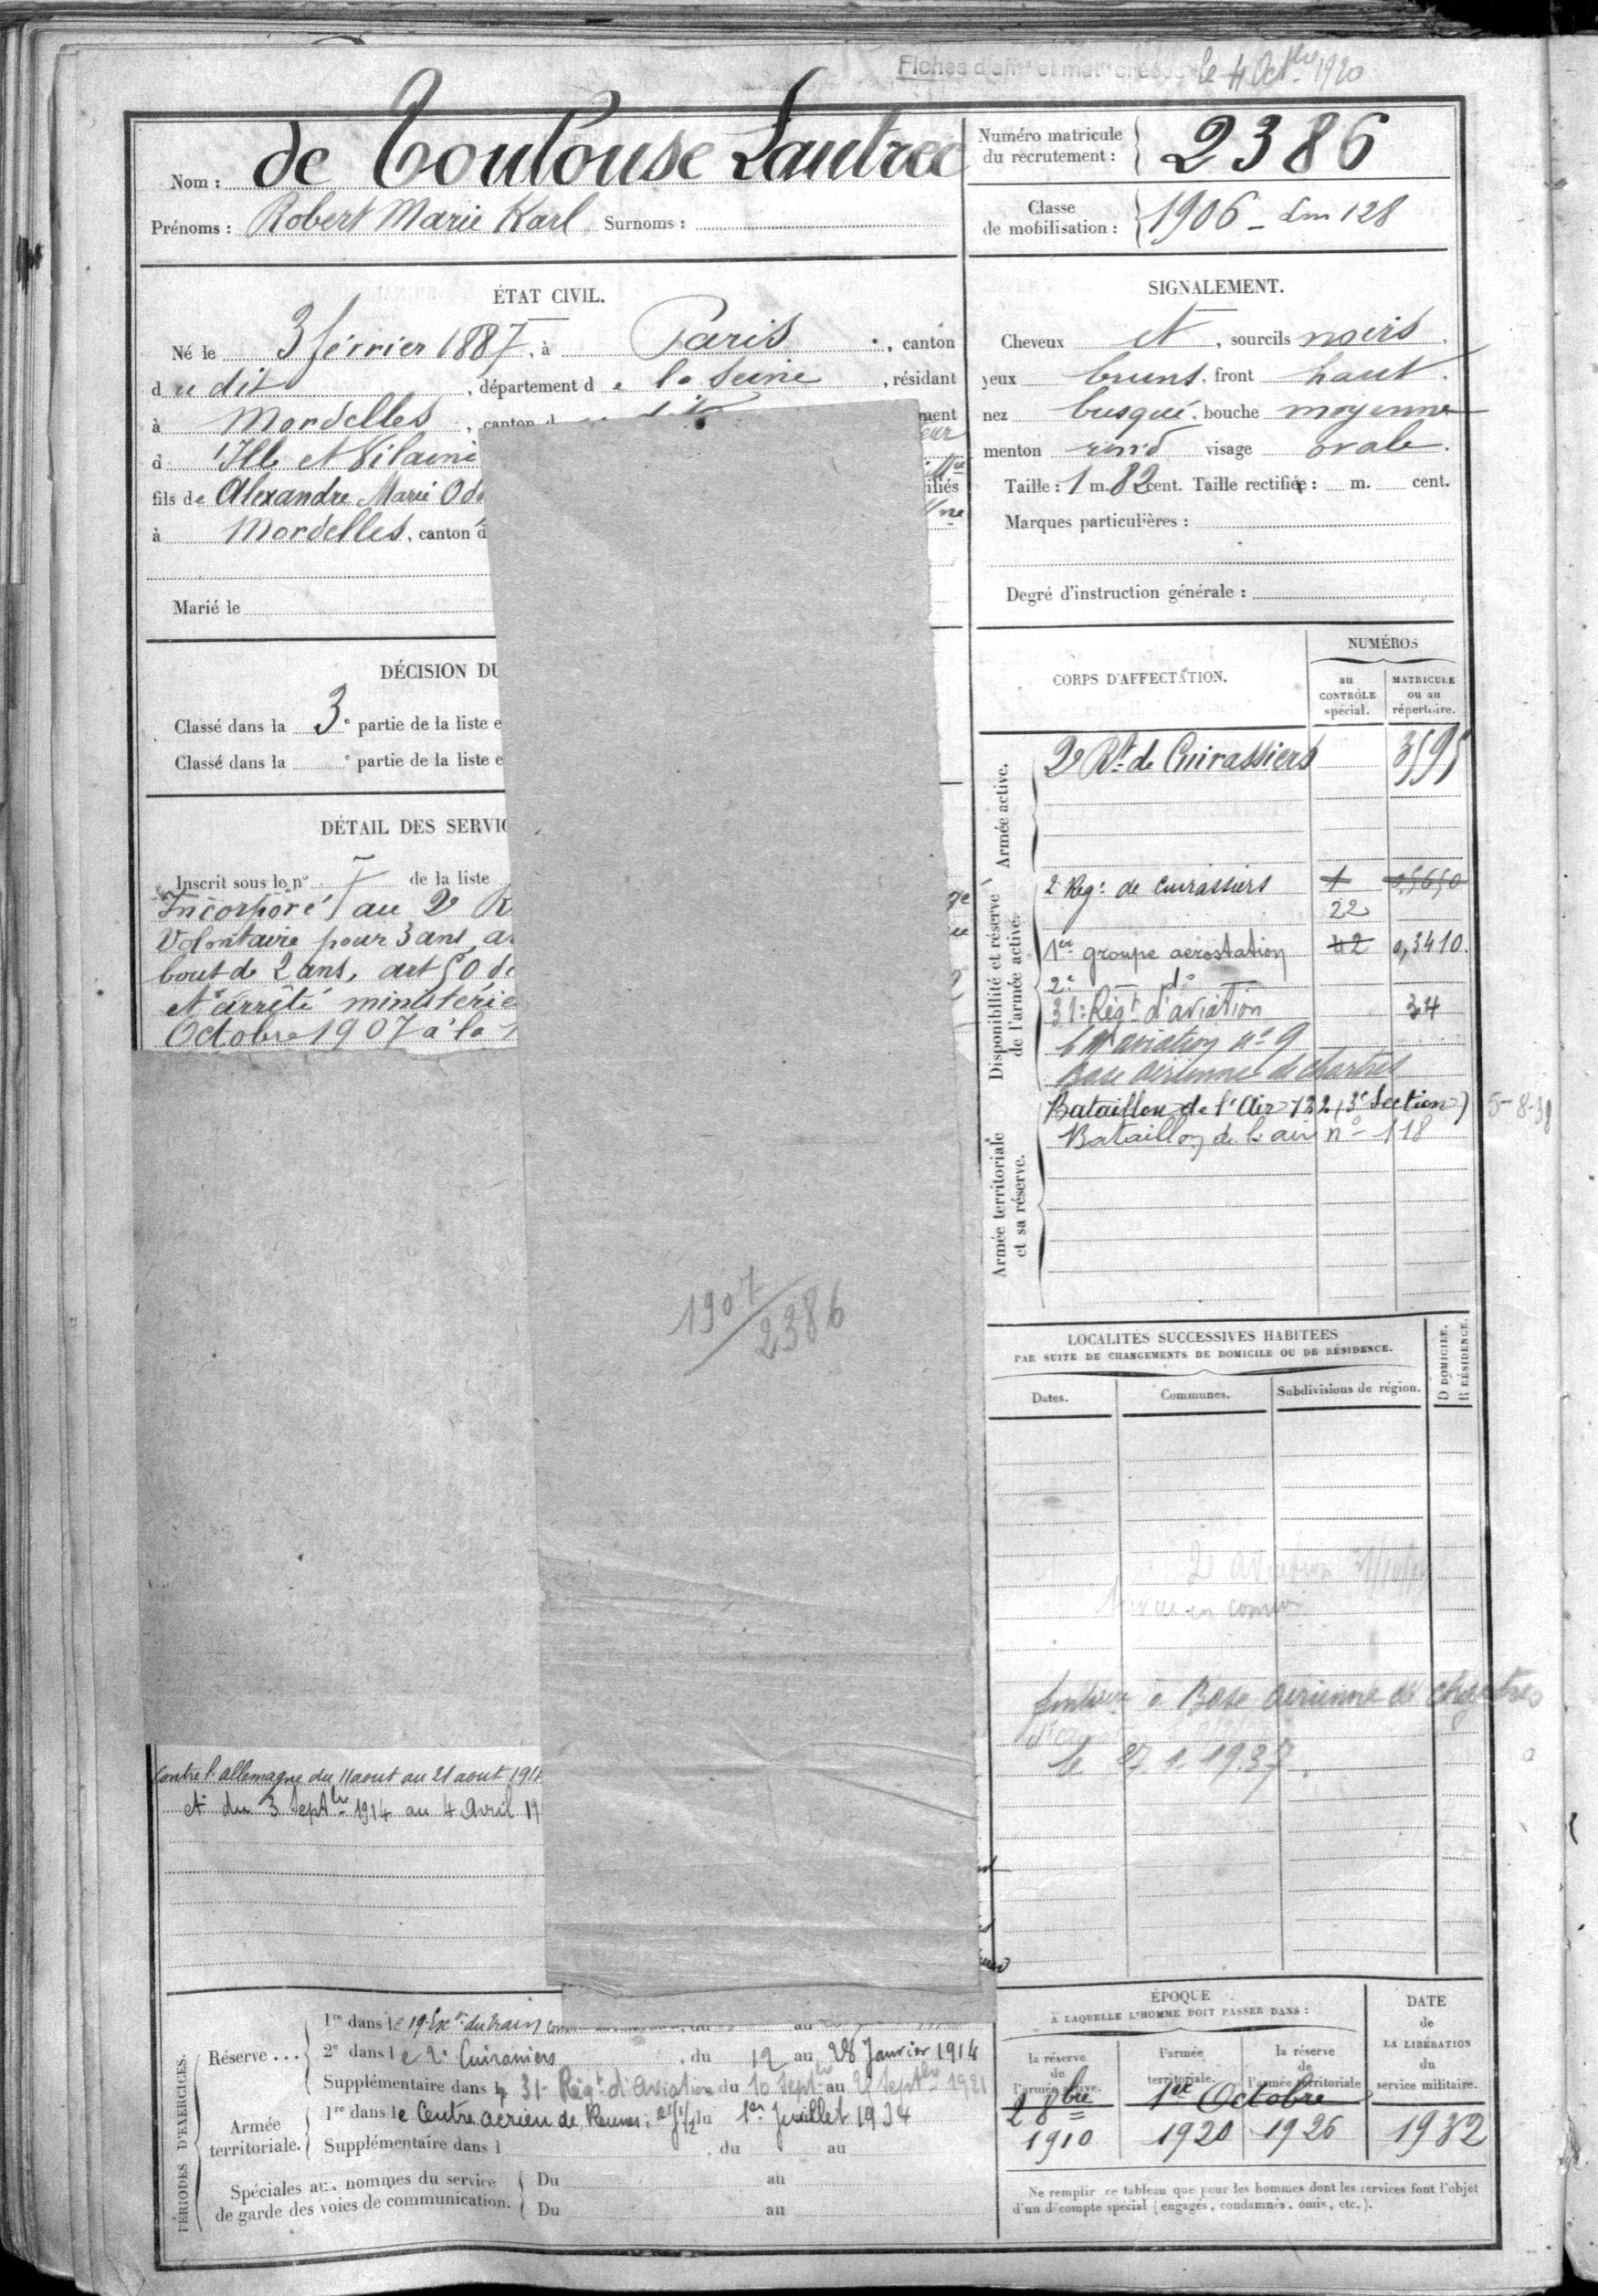 Fiches d'aff^on et mat^le créées le 4 Oct^bre 1920
Nom : de Toulouse Lautrec
Prénoms : Robert Marie Karl, Surnoms :
Numéro matricule du recrutement : 2386
Classe de mobilisation : 1906 - Lm 128
ÉTAT CIVIL.
Né le 3 février 1887, à Paris, canton
du dit, département de la Seine, résidant
à Mordelles, canton d
d'Ille et Vilaine
fils de Alexandre Marie Od
à Mordelles, canton d
Marié le
DÉCISION DU
Classé dans la 3e partie de la liste e
Classé dans la e partie de la liste e
DÉTAIL DES SERVIC
Inscrit sous le n° de la liste
Incorporé au 2e R
Volontaire pour 3 ans, a
bout de 2 ans, art 50 d
et arrêté ministérie
Octobre 1907 à la
1907/2386
Contre l'allemagne du 11 aout au 21 aout 191
et du 3 Sept^bre 1914 au 4 Avril 19
SIGNALEMENT.
Cheveux et, sourcils noirs.
yeux bruns, front haut.
nez busqué, bouche moyenne
menton rond visage ovale.
Taille : 1 m. 82 cent. Taille rectifiée : m. cent.
Marques particulières :
Degré d'instruction générale :
CORPS D'AFFECTATION.
NUMÉROS
au CONTRÔLE spécial.
MATRICULE ou au répertoire.
Armée active.
2e R^t de Cuirassiers 3595
Disponibilité et réserve de l'armée active.
2e Rég^t de Cuirassiers 1 0,5650
22
1er groupe aérostation 42 0,3410.
2e — d° —
31e Rég^t d'aviation 34
b^on aviation n° 9
Base aérienne de Chartres
Armée territoriale et sa réserve.
Bataillon de l'Air 122 (3e Section) 5-8-38
Bataillon de l'air n° 118
LOCALITÉS SUCCESSIVES HABITÉES
PAR SUITE DE CHANGEMENTS DE DOMICILE OU DE RÉSIDENCE.
Dates.
Communes.
Subdivisions de région.
D DOMICILE.
R RÉSIDENCE.
Base aérienne de Chartres
le 27.1.1937.
PÉRIODES D'EXERCICES.
Réserve...
1re dans le 19e Esc^on du train
2e dans le 2e Cuirassiers, du 12 au 28 Janvier 1914
Supplémentaire dans le 31e Rég^t d'Aviation du 10 Sept^bre au 2 Sept^bre 1921
Armée territoriale.
1re dans le Centre aérien de Rennes : du 1er Juillet 1934
Supplémentaire dans l du au
Spéciales aux hommes du service de garde des voies de communication.
Du au
Du au
ÉPOQUE
À LAQUELLE L'HOMME DOIT PASSER DANS :
la réserve de l'armée active.
l'armée territoriale.
la réserve de l'armée territoriale
DATE de LA LIBÉRATION du service militaire.
2 8bre 1er Octobre
1910 1920 1926 1932
Ne remplir ce tableau que pour les hommes dont les services font l'objet
d'un décompte spécial (engagés, condamnés, omis, etc.).